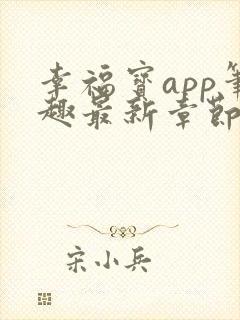 幸福宝app笔
趣最新章节
宋小兵